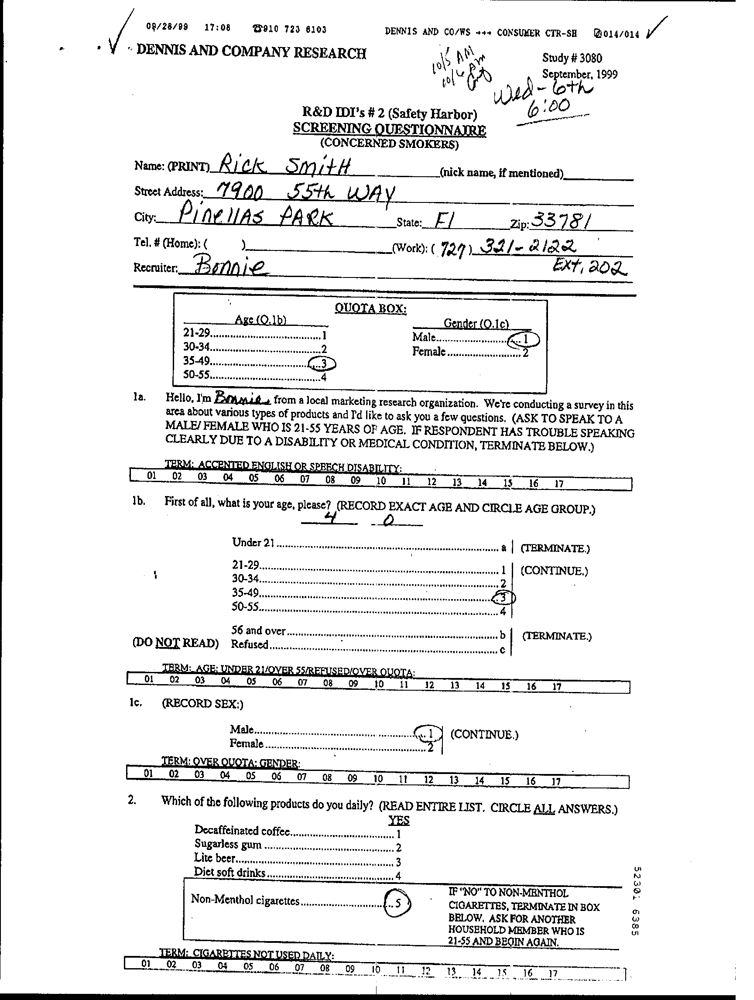 09/28/99 17:08 ☎910 723 6103 DENNIS AND CO/WS →→→ CONSUMER CTR-SH 014/014
DENNIS AND COMPANY RESEARCH
10/5 AM
10/6 PM
Study # 3080
September, 1999
Wed - 6th
6:00
R&D IDI's # 2 (Safety Harbor)
SCREENING QUESTIONNAIRE
(CONCERNED SMOKERS)
Name: (PRINT) Rick Smith (nick name, if mentioned)
Street Address: 7900 55th WAY
City: Pinellas PARK State: Fl Zip: 33781
Tel. # (Home): ( ) (Work): ( 727 ) 321-2122
Recruiter: Bonnie Ext, 202
QUOTA BOX:
Age (Q.1b) Gender (Q.1c)
21-29 1 Male 1
30-34 2 Female 2
35-49 3
50-55 4
1a. Hello, I'm Bonnie from a local marketing research organization. We're conducting a survey in this
area about various types of products and I'd like to ask you a few questions. (ASK TO SPEAK TO A
MALE/ FEMALE WHO IS 21-55 YEARS OF AGE. IF RESPONDENT HAS TROUBLE SPEAKING
CLEARLY DUE TO A DISABILITY OR MEDICAL CONDITION, TERMINATE BELOW.)
TERM: ACCENTED ENGLISH OR SPEECH DISABILITY:
01 02 03 04 05 06 07 08 09 10 11 12 13 14 15 16 17
1b. First of all, what is your age, please? (RECORD EXACT AGE AND CIRCLE AGE GROUP.)
4 0
Under 21 a (TERMINATE.)
21-29 1 (CONTINUE.)
30-34 2
35-49 3
50-55 4
56 and over b (TERMINATE.)
(DO NOT READ) Refused c
TERM: AGE: UNDER 21/OVER 55/REFUSED/OVER QUOTA:
01 02 03 04 05 06 07 08 09 10 11 12 13 14 15 16 17
1c. (RECORD SEX:)
Male 1 (CONTINUE.)
Female 2
TERM: OVER QUOTA: GENDER:
01 02 03 04 05 06 07 08 09 10 11 12 13 14 15 16 17
2. Which of the following products do you daily? (READ ENTIRE LIST. CIRCLE ALL ANSWERS.)
YES
Decaffeinated coffee 1
Sugarless gum 2
Lite beer 3
Diet soft drinks 4
Non-Menthol cigarettes 5
IF "NO" TO NON-MENTHOL
CIGARETTES, TERMINATE IN BOX
BELOW. ASK FOR ANOTHER
HOUSEHOLD MEMBER WHO IS
21-55 AND BEGIN AGAIN.
TERM: CIGARETTES NOT USED DAILY:
01 02 03 04 05 06 07 08 09 10 11 12 13 14 15 16 17
52301 6385